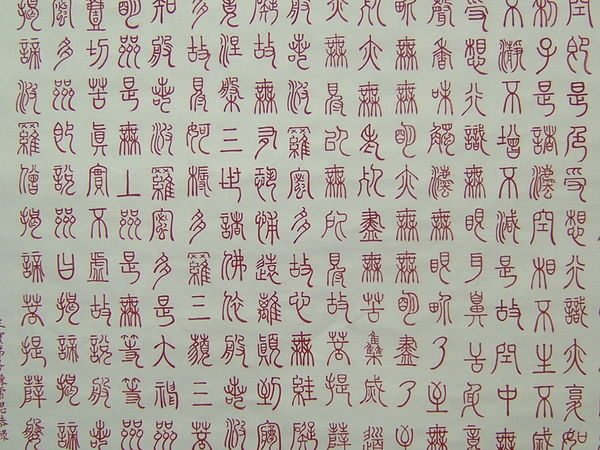 空即是色受想行識亦復如
利子是諸法空相不生不滅
不淨不增不減是故空中無
受想行識無眼耳鼻舌身意
聲香味觸法無眼界乃至無
界無無明亦無無明盡乃至
死亦無老死盡無苦集滅道
亦無得以無所得故菩提薩
般若波羅蜜多故心無罣礙
礙故無有恐怖遠離顛倒夢
竟涅槃三世諸佛依般若波
多故得阿耨多羅三藐三菩
知般若波羅蜜多是大神咒
明咒是無上咒是無等等咒
一切苦真實不虛故說般若
蜜多咒即說咒曰揭諦揭諦
揭諦波羅僧揭諦菩提薩婆